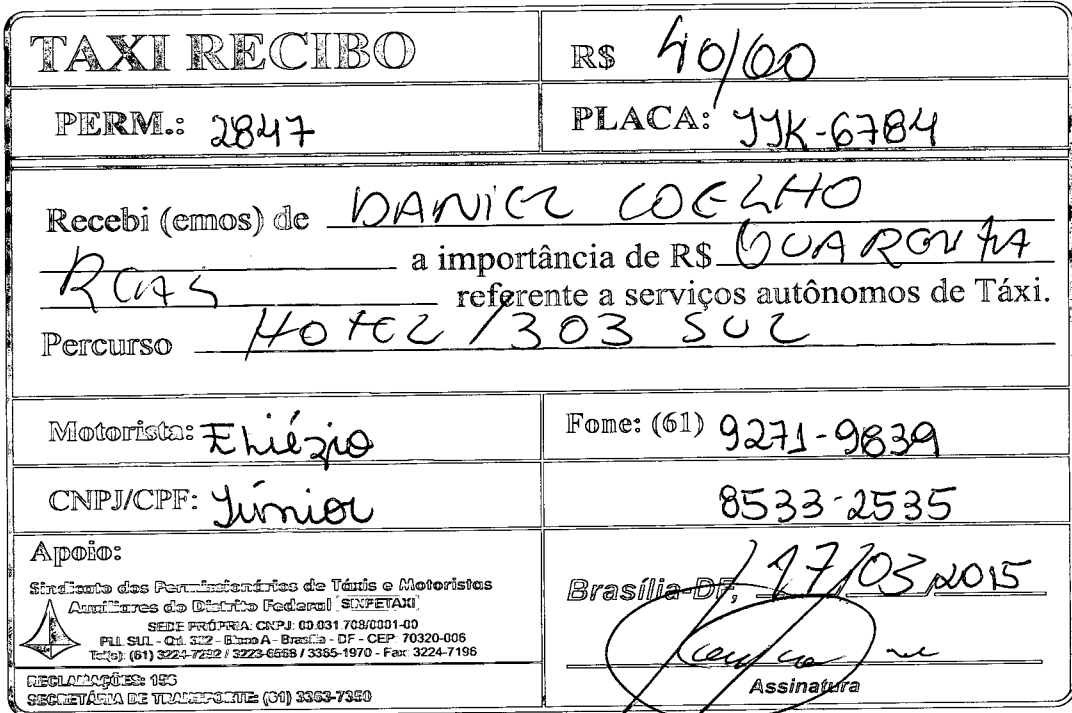 TAXI RECIBO
R$ 40/00
PERM.: 2847
PLACA: JJK-6784
Recebi (emos) de DANIEL COELHO
a importância de R$ QUARENTA
REAS referente a serviços autônomos de Táxi.
Percurso HOTEL / 303 SUL
Motorista: Eliézio
Fone: (61) 9271-9839
CNPJ/CPF: Júnior
8533-2535
Apoio:
Sindicato dos Permissionários de Táxis e Motoristas
Auxiliares do Distrito Federal SINPETAXI
SEDE PRÓPRIA: CNPJ: 00.031.708/0001-00
SUL - Qd. 302 - Bloco A - Brasília - DF - CEP: 70320-006
Tel(s): (61) 3224-7292 / 3223-6558 / 3365-1970 - Fax: 3224-7196
RECLAMAÇÕES: 156
SECRETÁRIA DE TRANSPORTE: (61) 3363-7350
Brasília-DF, 17/03/2015
Assinatura